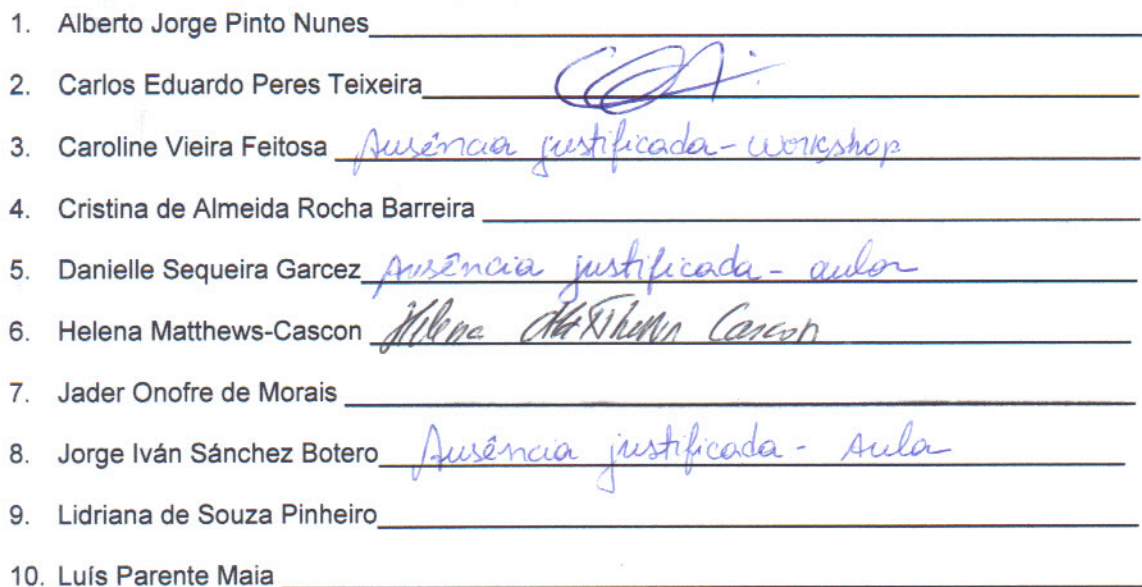 1. Alberto Jorge Pinto Nunes
2. Carlos Eduardo Peres Teixeira
3. Caroline Vieira Feitosa Ausência justificada - workshop
4. Cristina de Almeida Rocha Barreira
5. Danielle Sequeira Garcez Ausência justificada - aula
6. Helena Matthews-Cascon Helena Matthews Cascon
7. Jader Onofre de Morais
8. Jorge Iván Sánchez Botero Ausência justificada - Aula
9. Lidriana de Souza Pinheiro
10. Luís Parente Maia